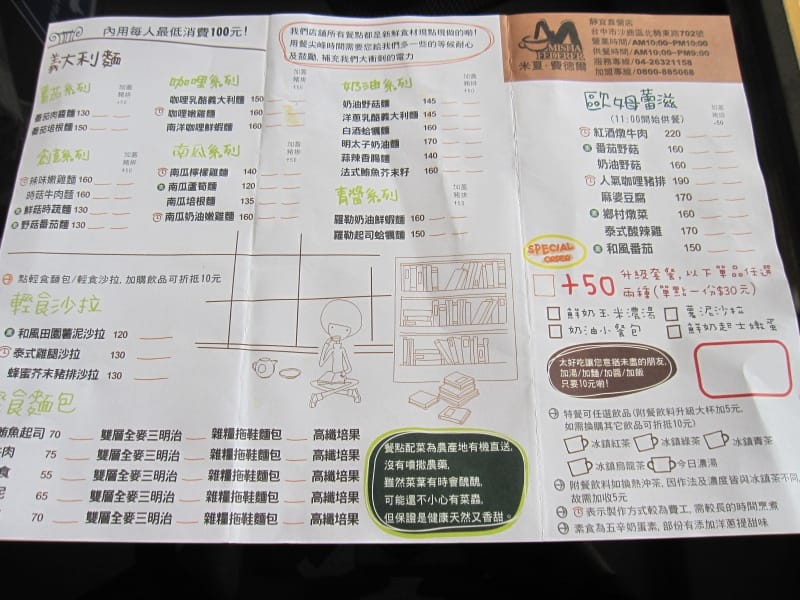 內用每人最低消費100元!
義大利麵
番茄系列
加蓋豬排+50
番茄肉醬麵 130
番茄培根麵 150
咖哩系列
加蓋豬排+50
咖哩乳酪義大利麵 150
咖哩嫩雞麵 160
南洋咖哩鮮蝦麵 160
創意系列
加蓋豬排+50
辣味嫩雞麵 160
時菇牛肉麵 160
鮮菇時蔬麵 130
野菇番茄麵 130
南瓜系列
加蓋豬排+50
南瓜檸檬雞麵 140
南瓜蘆筍麵 120
南瓜培根麵 135
南瓜奶油嫩雞麵 160
我們店舖所有餐點都是新鮮食材現點現做的喲!
用餐尖峰時間需要您給我們多一些的等候耐心
及鼓勵,補充我們大衝刺的電力
奶油系列
加蓋豬排+50
奶油野菇麵 145
洋蔥乳酪義大利麵 145
白酒蛤蠣麵 160
明太子奶油麵 170
蒜辣香腸麵 140
法式鮪魚芥末籽 160
青醬系列
加蓋豬排+50
羅勒奶油鮮蝦麵 160
羅勒起司蛤蠣麵 150
點輕食麵包/輕食沙拉, 加購飲品可折抵10元
輕食沙拉
和風田園薯泥沙拉 120
泰式雞腿沙拉 130
蜂蜜芥末豬排沙拉 130
食麵包
鮪魚起司 70 雙層全麥三明治 雜糧拖鞋麵包 高纖焙果
牛肉 75 雙層全麥三明治 雜糧拖鞋麵包 高纖焙果
食 55 雙層全麥三明治 雜糧拖鞋麵包 高纖焙果
泥 65 雙層全麥三明治 雜糧拖鞋麵包 高纖焙果
70 雙層全麥三明治 雜糧拖鞋麵包 高纖焙果
餐點配菜為農產地有機直送,
沒有噴撒農藥,
雖然菜葉有時會醜醜,
可能還不小心有菜蟲,
但保證是健康天然又香甜。
MISHA
FEDERER
米夏·費德爾
靜宜直營店
台中市沙鹿區北勢東路702號
營業時間/AM10:00~PM10:00
供餐時間/AM10:00~PM9:00
服務專線/04-26321158
加盟專線/0800-885068
歐姆蕾滋
(11:00開始供餐)
加蓋豬排+50
紅酒燉牛肉 220
番茄野菇 160
奶油野菇 160
人氣咖哩豬排 190
麻婆豆腐 170
鄉村燉菜 160
泰式酸辣雞 170
和風番茄 150
SPECIAL ORDER
+50 升級套餐,以下單品任選
兩種(單點一份$30元)
鮮奶玉米濃湯 薯泥沙拉
奶油小餐包 鮮奶起士嫩蛋
太好吃讓您意猶未盡的朋友,
加湯/加麵/加醬/加飯
只要10元喲!
特餐可任選飲品(附餐飲料升級大杯加5元,
如需換購其它飲品可折抵10元)
冰鎮紅茶 冰鎮綠茶 冰鎮青茶
冰鎮烏龍茶 今日濃湯
附餐飲料如換熱沖茶, 因作法及濃度皆與冰鎮茶不同,
故需加收5元
表示製作方式較為費工, 需較長的時間烹煮
素食為五辛奶蛋素, 部份有添加洋蔥提甜味